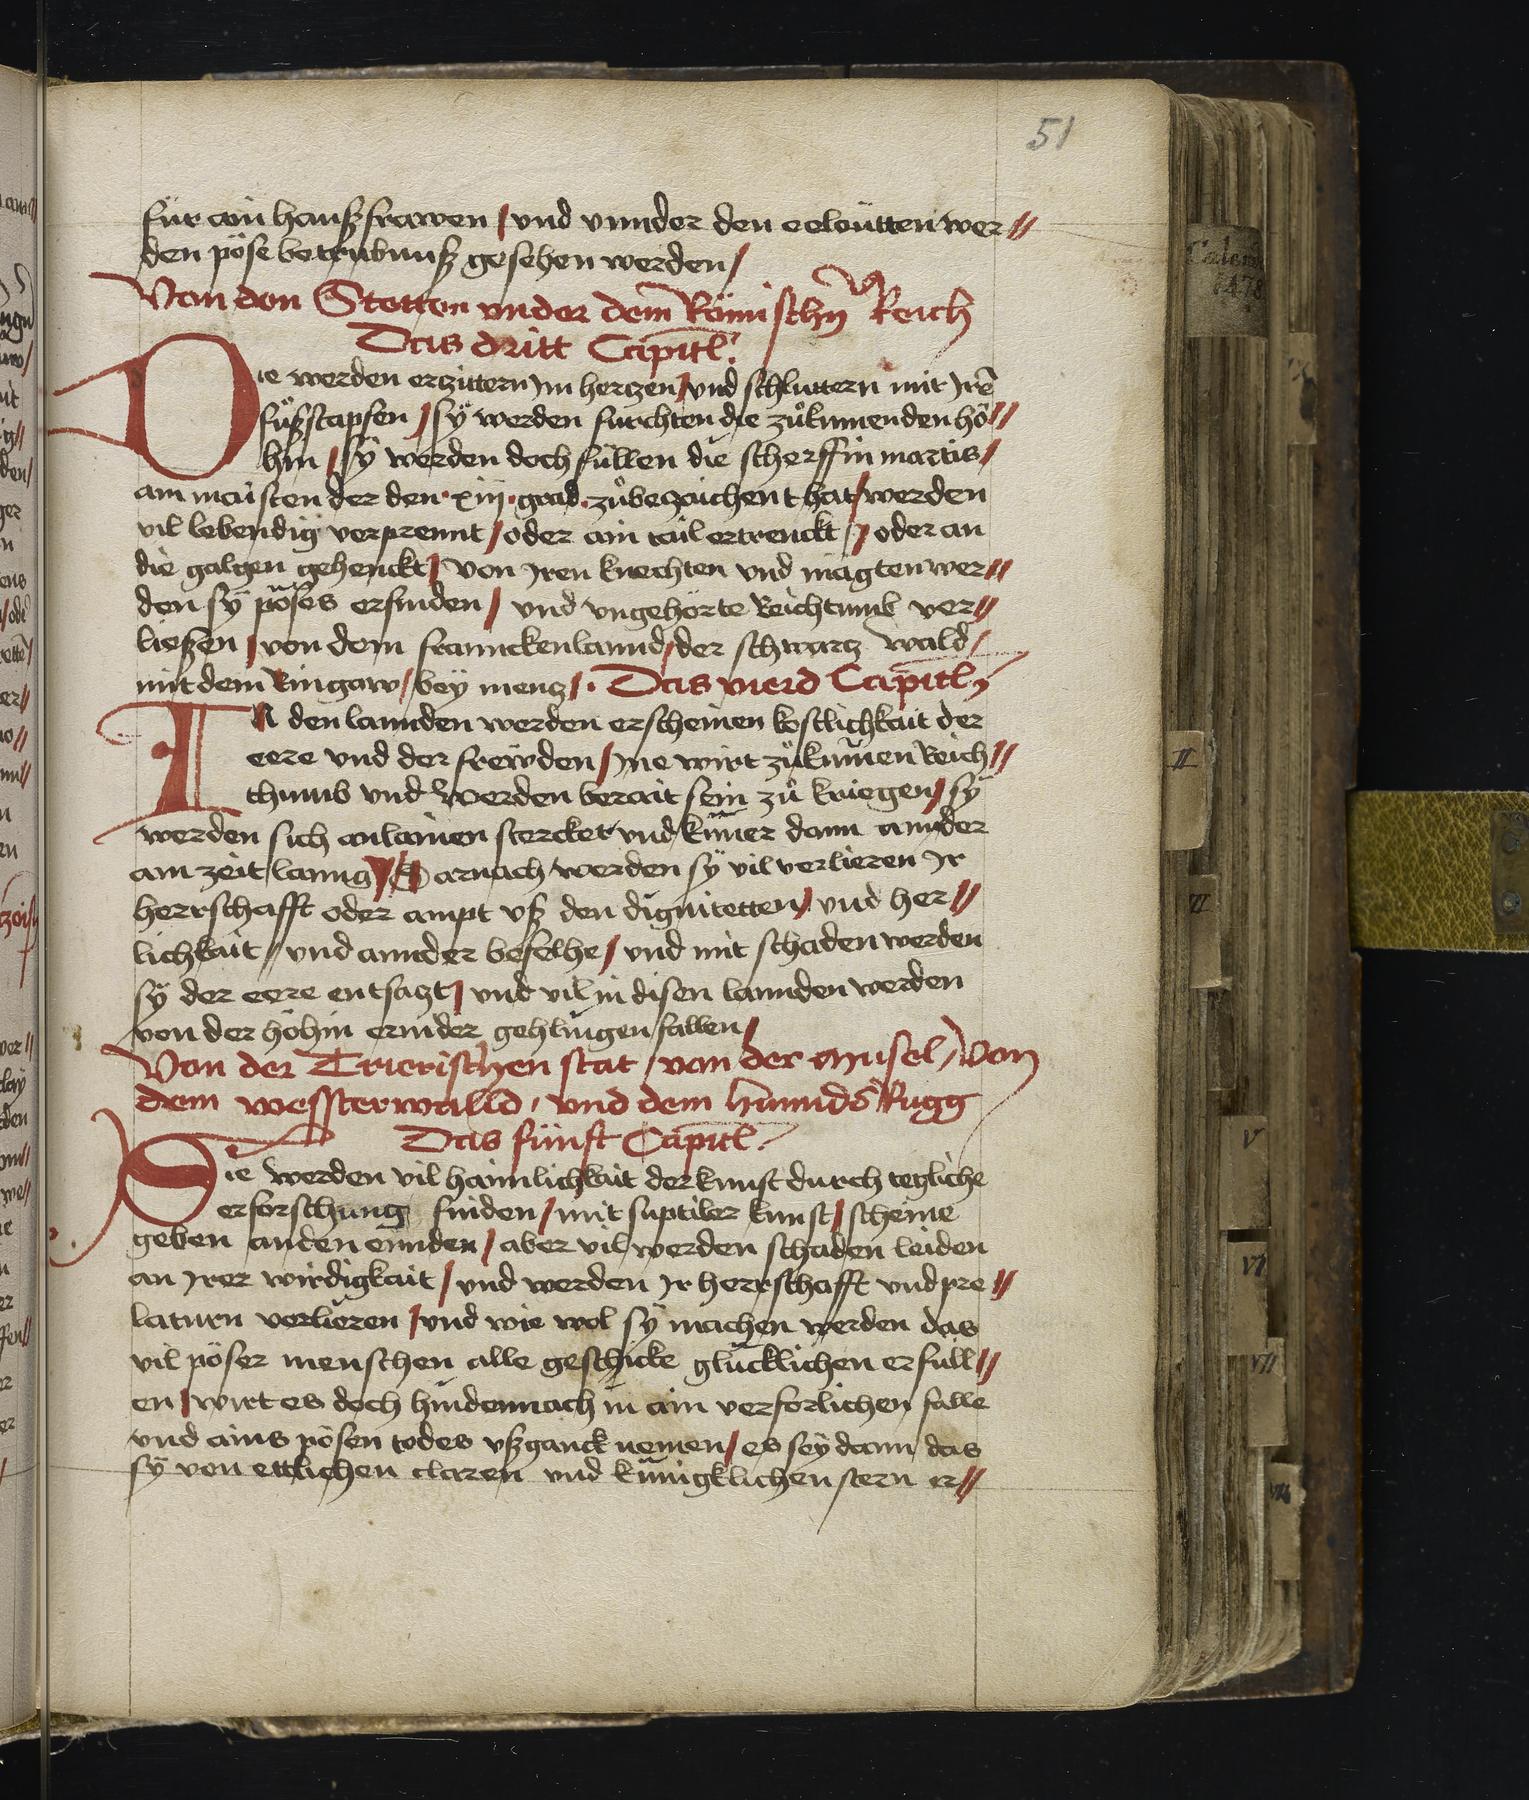 51
für ain haußfrawen / vnd vnnder den eeloütten wer //
den pöse betrubnuß gesehen werden /
Von den Stetten vnder dem Römischn Reich
Das dritt Capitl
Die werden erzittern im hertzen / vnd schluttern mit jrē
füßstapfen / sÿ werden furchten die zůkumenden hö //
hin / sÿ werden doch füllen die scherffin martis /
am maisten der den · xiij · grad · zůbezaichent hat / werden
vil lebendig verprennt / oder ain tail ertrenckt / oder an
die galgen gehenckt / von jren knechten vnd mägten wer //
den sÿ pöses erfinden / vnd vngehörte Reichtumb ver //
ließen / von dem franckenlannd / der schwartz wald /
mit dem Ringaw / bey mentz / · Das vierd Capitl
In den lannden werden erscheinen kostlichkait der
eere vnd der frewden / jne wirt zůkumen Reich //
thumb vnd werden berait sein zů kriegen / sÿ
werden sich anlainen stercker vnd küner dann annder
ain zeit lanng / Darnach werden sÿ vil verlieren Ir
herrschafft oder ampt vß den dignitetten / vnd her //
lichkait / vnd annder befelhe / vnd mit schaden werden
sÿ der eere entsazt / vnd vil in disen lannden werden
von der höhin ernider gehlingen fallen /
Von der Trierischen stat / von der Musel / Von
dem wessterwalld / vnd dem hunnds Rugg
Das fünft Capitl
Sie werden vil haimlichkait der kunst durch tegliche
erforschung finden / mit suptiler kunst / scheine
geben an den ennden / aber vil werden schaden leiden
an jrer wirdigkait / vnd werden jr herrschafft vnd pre //
laturn verlieren / vnd wie wol sÿ machen werden das
vil pöser menschen alle geschicke glücklichen erfüll //
en / wirt es doch hindennach in ain verforlichen falle
vnd ains pösen todes vßganck nemen / es sey dann das
sÿ von ettlichen claren vnd künigklichen stern er //
II
V
VI
VII